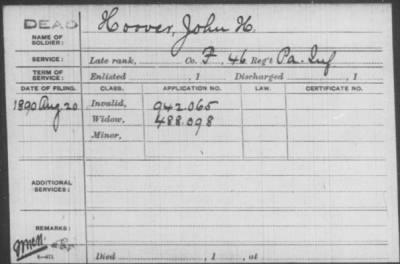 DEAD
NAME OF SOLDIER: Hoover, John H.
SERVICE: Late rank, Co. F, 46 Reg't Pa. Inf
TERM OF SERVICE: Enlisted , 1 Discharged , 1
DATE OF FILING. CLASS. APPLICATION NO. LAW. CERTIFICATE NO.
1890 Aug. 20 Invalid, 942.065
Widow, 488.098
Minor,
ADDITIONAL SERVICES:
REMARKS:
Died , 1 , at